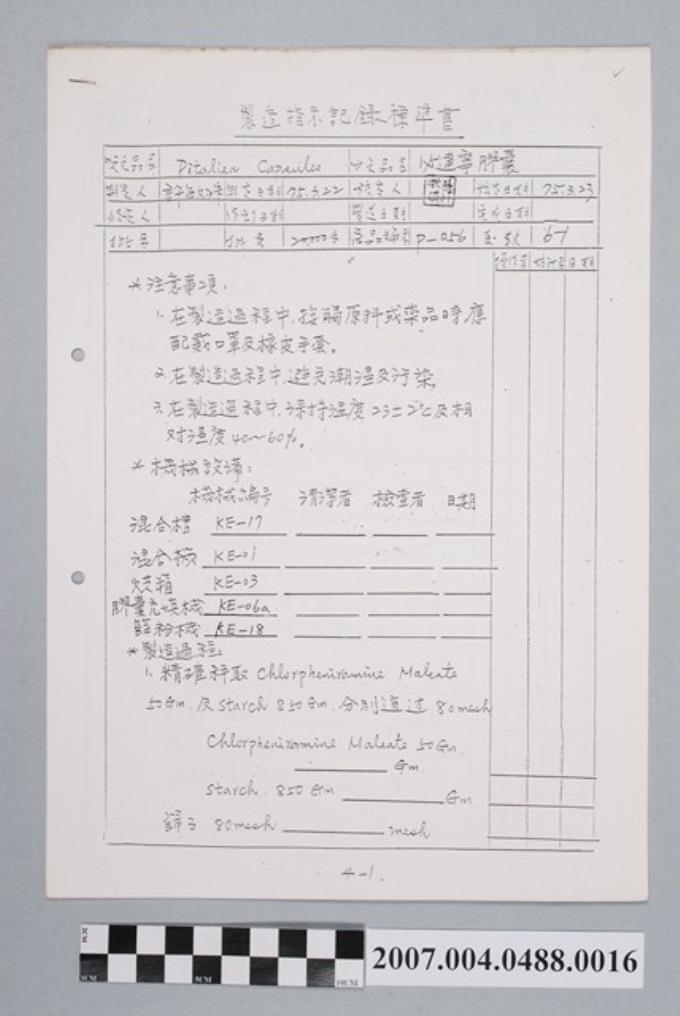 製造指示記錄標準書
英文品名 Pitalien Capsules 中文品名 必達寧膠囊
制定人 制定日期 75.3.22 核定人 核定日期 75.3.23
修定人 修訂日期 製造日期 完成日期
批號 批量 20000卡 產品編號 P-056 頁數 6-1
操作者 核對者 日期
*注意事項:
1.在製造過程中,接觸原料或藥品時應
配戴口罩及橡皮手套。
2.在製造過程中,避免潮溼及污染。
3.在製造過程中,保持溫度23±2℃及相
對溼度40~60%。
*機械設備:
機械編號 清潔者 檢查者 日期
混合槽 KE-17
混合機 KE-01
烘箱 KE-03
膠囊充填機 KE-06a
篩粉機 KE-18
*製造過程:
1.精確秤取 Chlorpheniramine Maleate
50Gm.及Starch 850Gm.分別通過80mesh
Chlorpheniramine Maleate 50Gm
Gm.
Starch. 850Gm Gm.
篩子 80mesh mesh
4-1.
2007.004.0488.0016